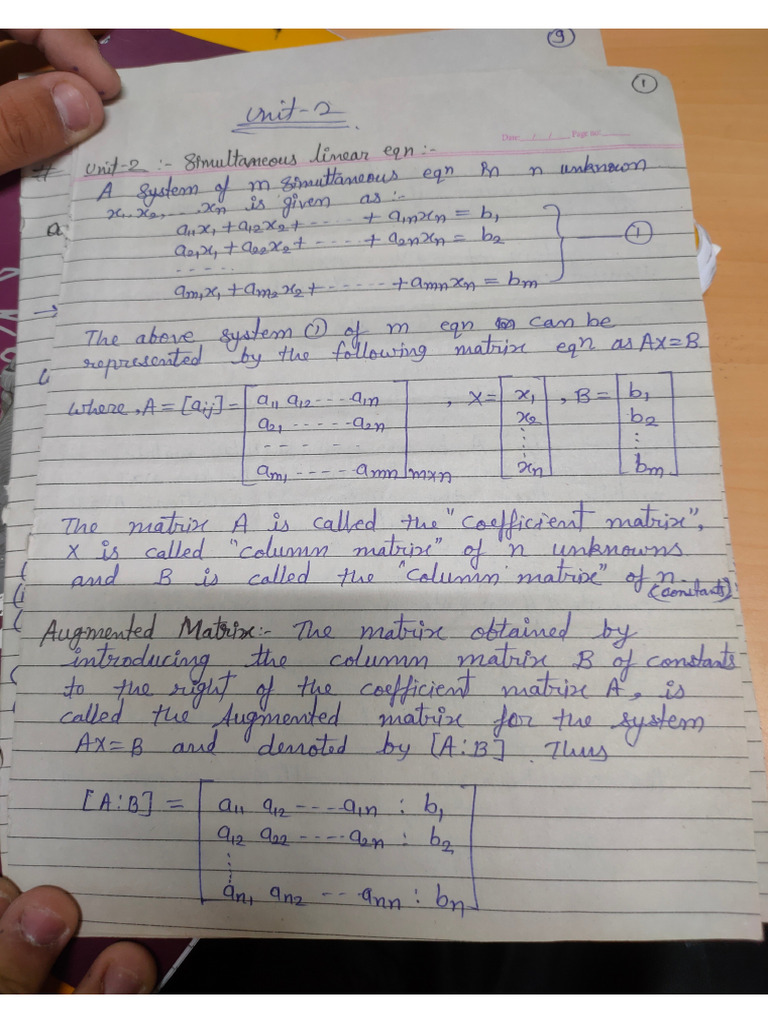 9
1
Unit-2
Date: / / Page no:
# Unit-2 :- Simultaneous linear eqn :-
A System of m Simultaneous eqn in n unknown
x₁, x₂, ..., xn is given as :-
a₁₁x₁ + a₁₂x₂ + ----- + a₁nxn = b₁
a₂₁x₁ + a₂₂x₂ + ----- + a₂nxn = b₂
-----
①
am₁x₁ + am₂x₂ + ------ + amnxn = bm
The above system ① of m eqn can be
represented by the following matrix eqn as AX=B
where, A = [aij] = [a₁₁ a₁₂ --- a₁n , X = [x₁ , B = [b₁
a₂₁ ------ a₂n x₂ b₂
- - - - - ⋮ ⋮
am₁ ---- amn]mxn xn] bm]
The matrix A is called the "coefficient matrix",
X is called "column matrix" of n unknowns
and B is called the "column matrix" of n.
(constants)
Augmented Matrix:- The matrix obtained by
introducing the column matrix B of constants
to the right of the coefficient matrix A, is
called the Augmented matrix for the system
AX=B and denoted by [A:B]. Thus
[A:B] = [a₁₁ a₁₂ ---- a₁n : b₁
a₁₂ a₂₂ ---- a₂n : b₂
⋮
an₁ an₂ --- ann : bn]